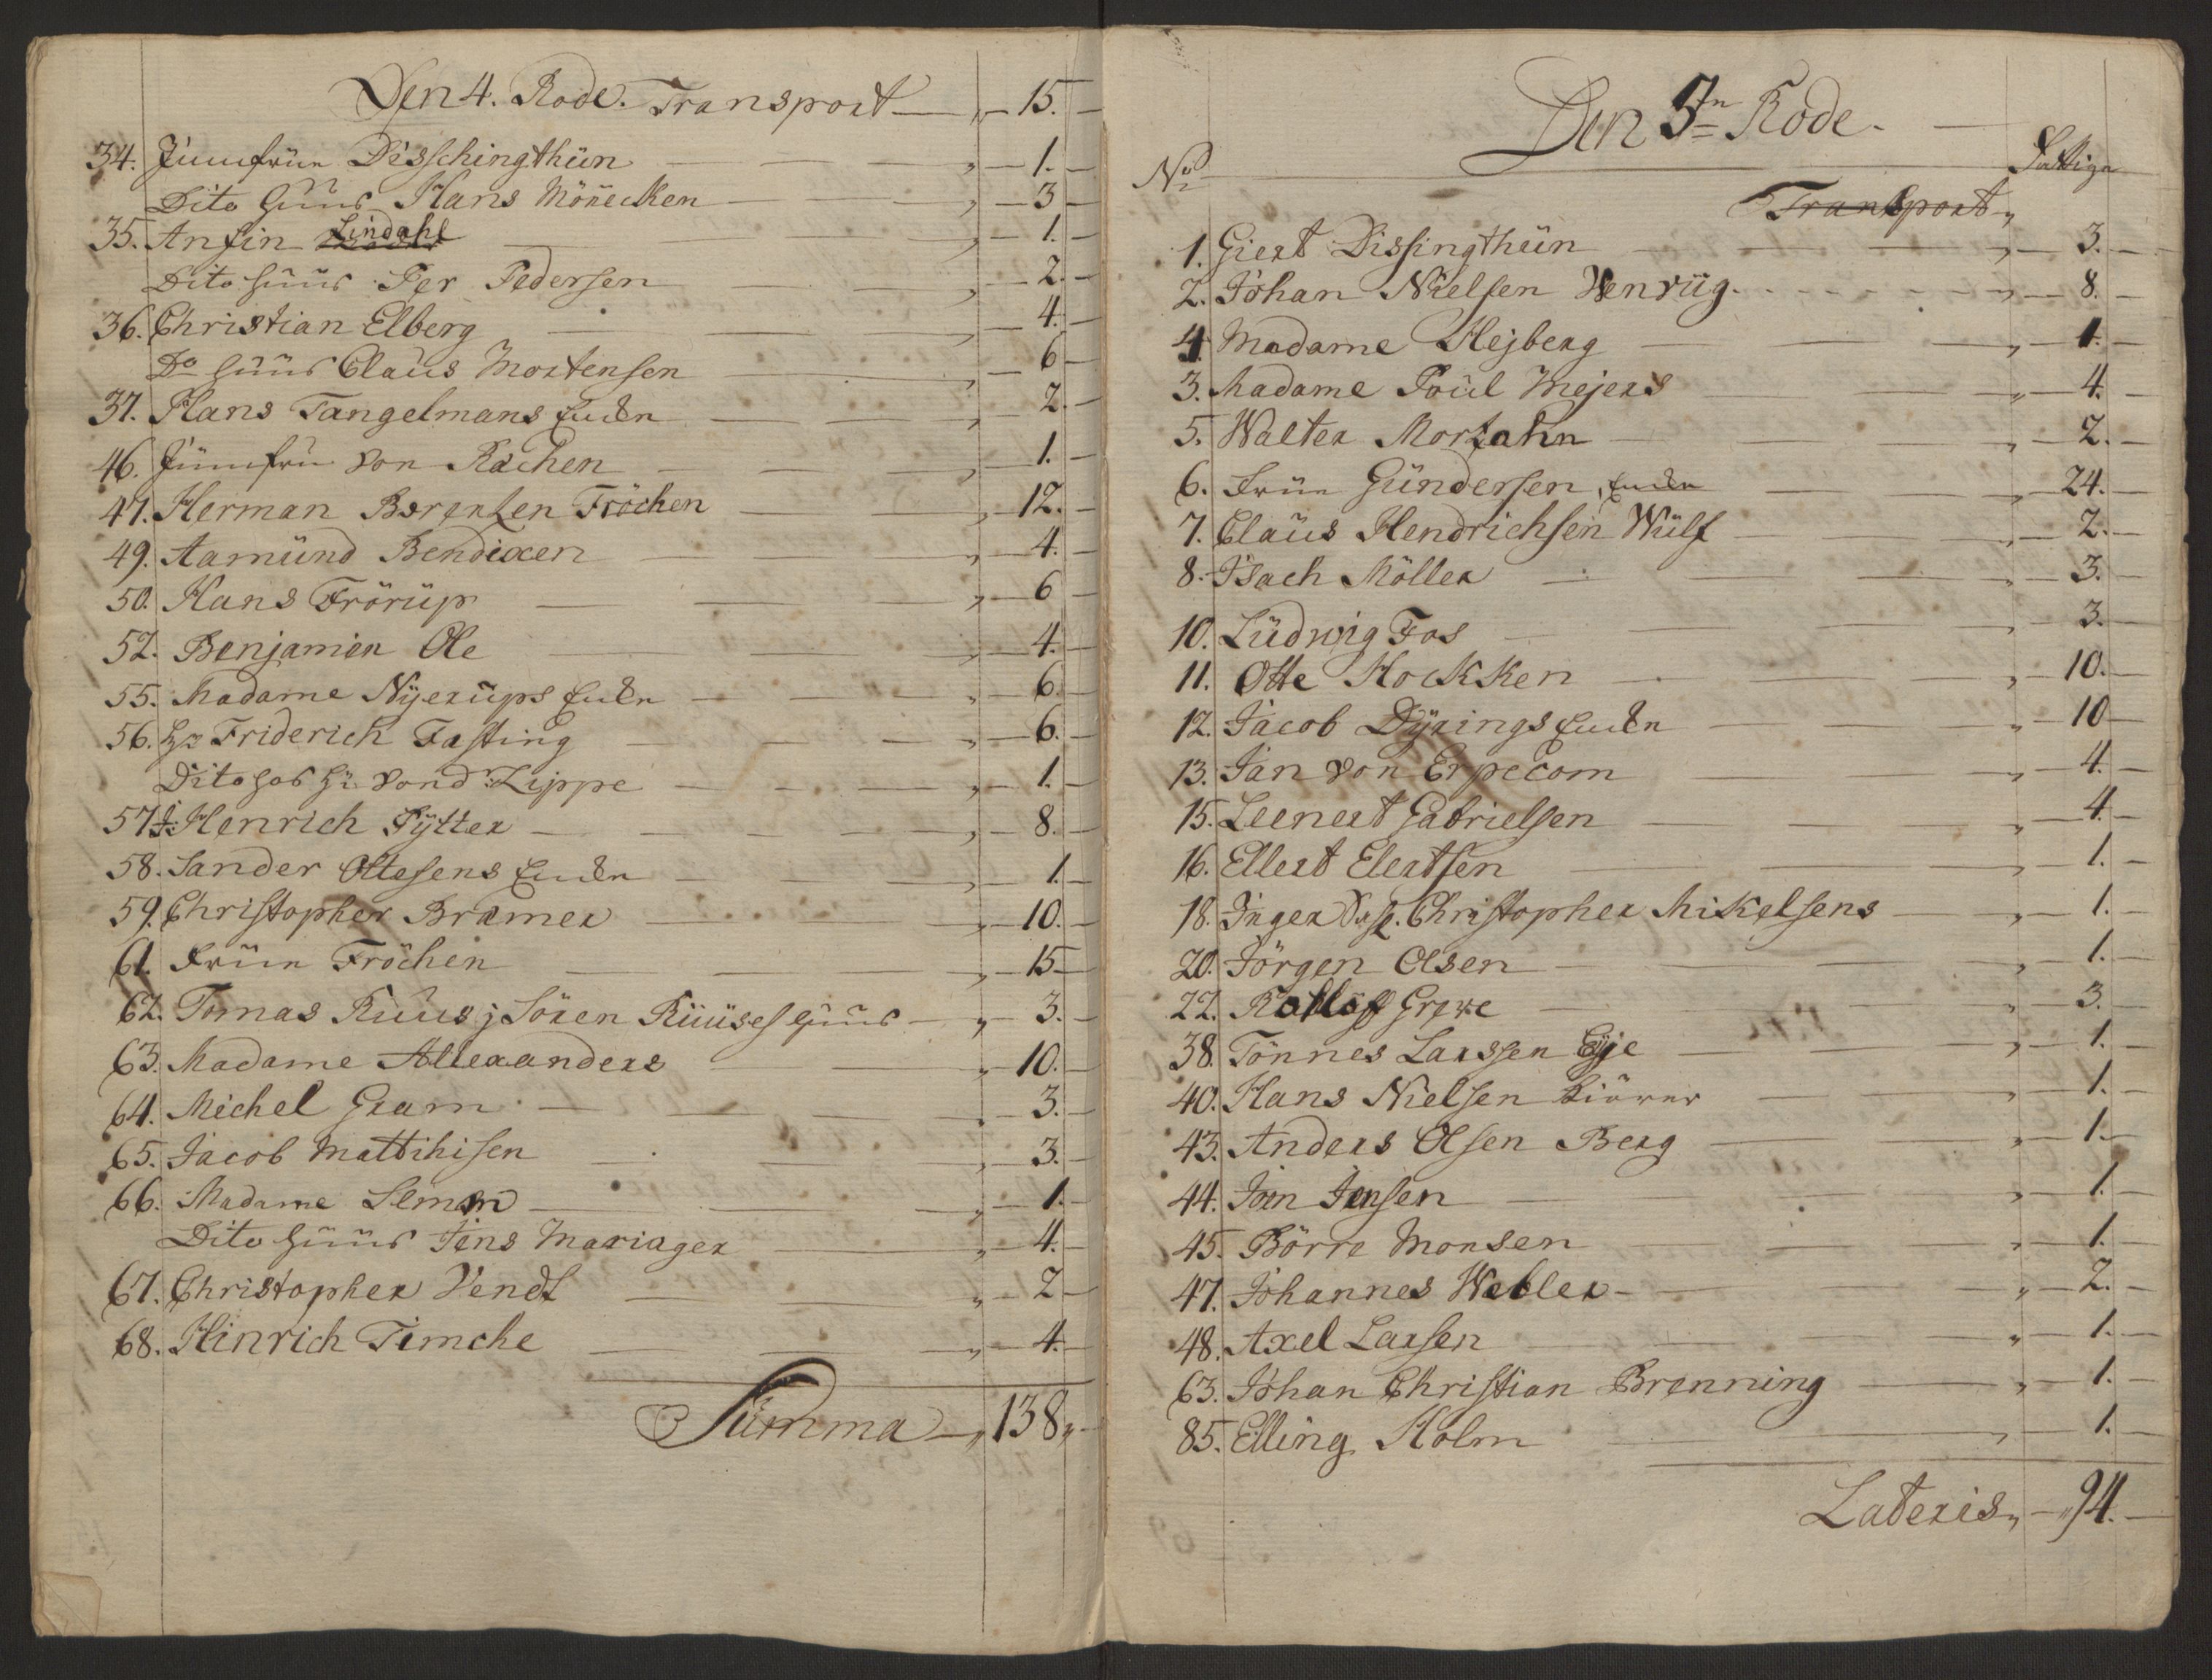 Den 4. Rode. Transport — 15.
34. Jumfrue Disschingthün — 1.
Dito Huus Hans Mönecken — 3
35. Anfin Lindahl — 1.
Dito Huus Per Pedersen — 2.
36. Christian Elberg — 4.
Do Huus Claus Mortensen — 6
37. Hans Tangelmans Enken — 2.
46. Jumfru von Rechen — 1.
47. Herman Berentzen Fröchen — 12.
49. Aamünd Bendixen — 4.
50. Hans Frörüp — 6
52. Benjamin Ole — 4.
55. Madame Nÿerüps Enken — 6.
56. Hr Friderich Fasting — 6.
Dito hos Hr. Vond: Lippe — 1.
57. Henrich Pÿtter — 8.
58. Sander Ottesens Enken — 1.
59. Christopher Bramer — 10.
61. Frue Fröchen — 15
62. Tomas Ruus j Sören Rüüses Huus — 3.
63. Madame Allexanders — 10.
64. Michel Gram — 3.
65. Jacob Mattihisen — 3.
66. Madame — 1.
Dito Huus Jens Mariager — 4.
67. Christopher Vendt — 2
68. Hinrich Timche — 4.
Summa — 138,,
Den 5te Rode.
No Fattige
Transport
1. Giert Dissingthün — 3.
2. Johan Nielsen Wenrüg — 8.
4. Madame Hejberg — 1.
3. Madame Poül Mejers — 4.
5. Walter Mortzahn — 2.
6. Frue Gündersen, Enken — 24.
7. Claus Hendrichsen Wülf — 2.
8. Isach Möller — 3.
10. Lüdwig Fos — 3.
11. Otte Hockken — 10.
12. Jacob Dÿrings Enken — 10
13. Jan von Erpecom — 4.
15. Leenert Gabrielsen — 4.
16. Ellert Elertsen — 1.
18. Inger Christopher Mikelsens — 1.
20. Jörgen Olsen — 1.
22. Rolloff Greve — 3.
38. Tönnes Larssen Eÿe — 1.
40. Hans Nielsen — 1.
43. Anders Olsen Berg — 1.
44. Jon Jensen — 1.
45. Börre Monsen — 1.
47. Johannes Webler — 2.
48. Axel Larsen — 1.
63. Johan Christian Brenning — 1.
85. Elling Holm — 1.
Lateris,, — 94.